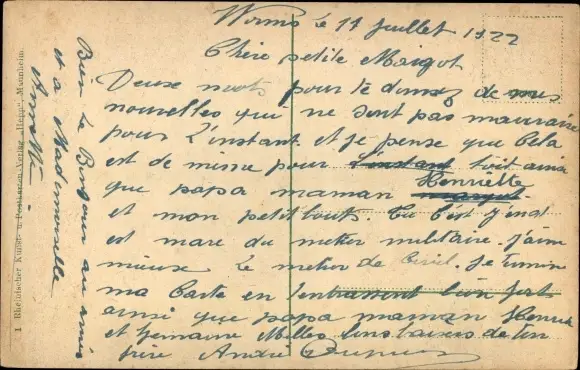 Worms le 11 Juillet 1922
Chère petite Margot
Deux mots pour te donner de mes
nouvelles qui ne sont pas mauvaise
pour l'instant. et je pense que cela
est de même pour l'instant toit ainsi
que papa maman Henriette
et mon petit
est mare du metier militaire. J'aime
mieux le metier de Civil. Je termine
ma Carte en t'embrassant bien fort
ainsi que papa maman Henriette
et Germaine Milles de ton
frère André
Bien le Bonjour au amis
et a Mademoiselle
1 Rheinischer Kunst- u. Postkarten-Verlag „Hepp", Mannheim.